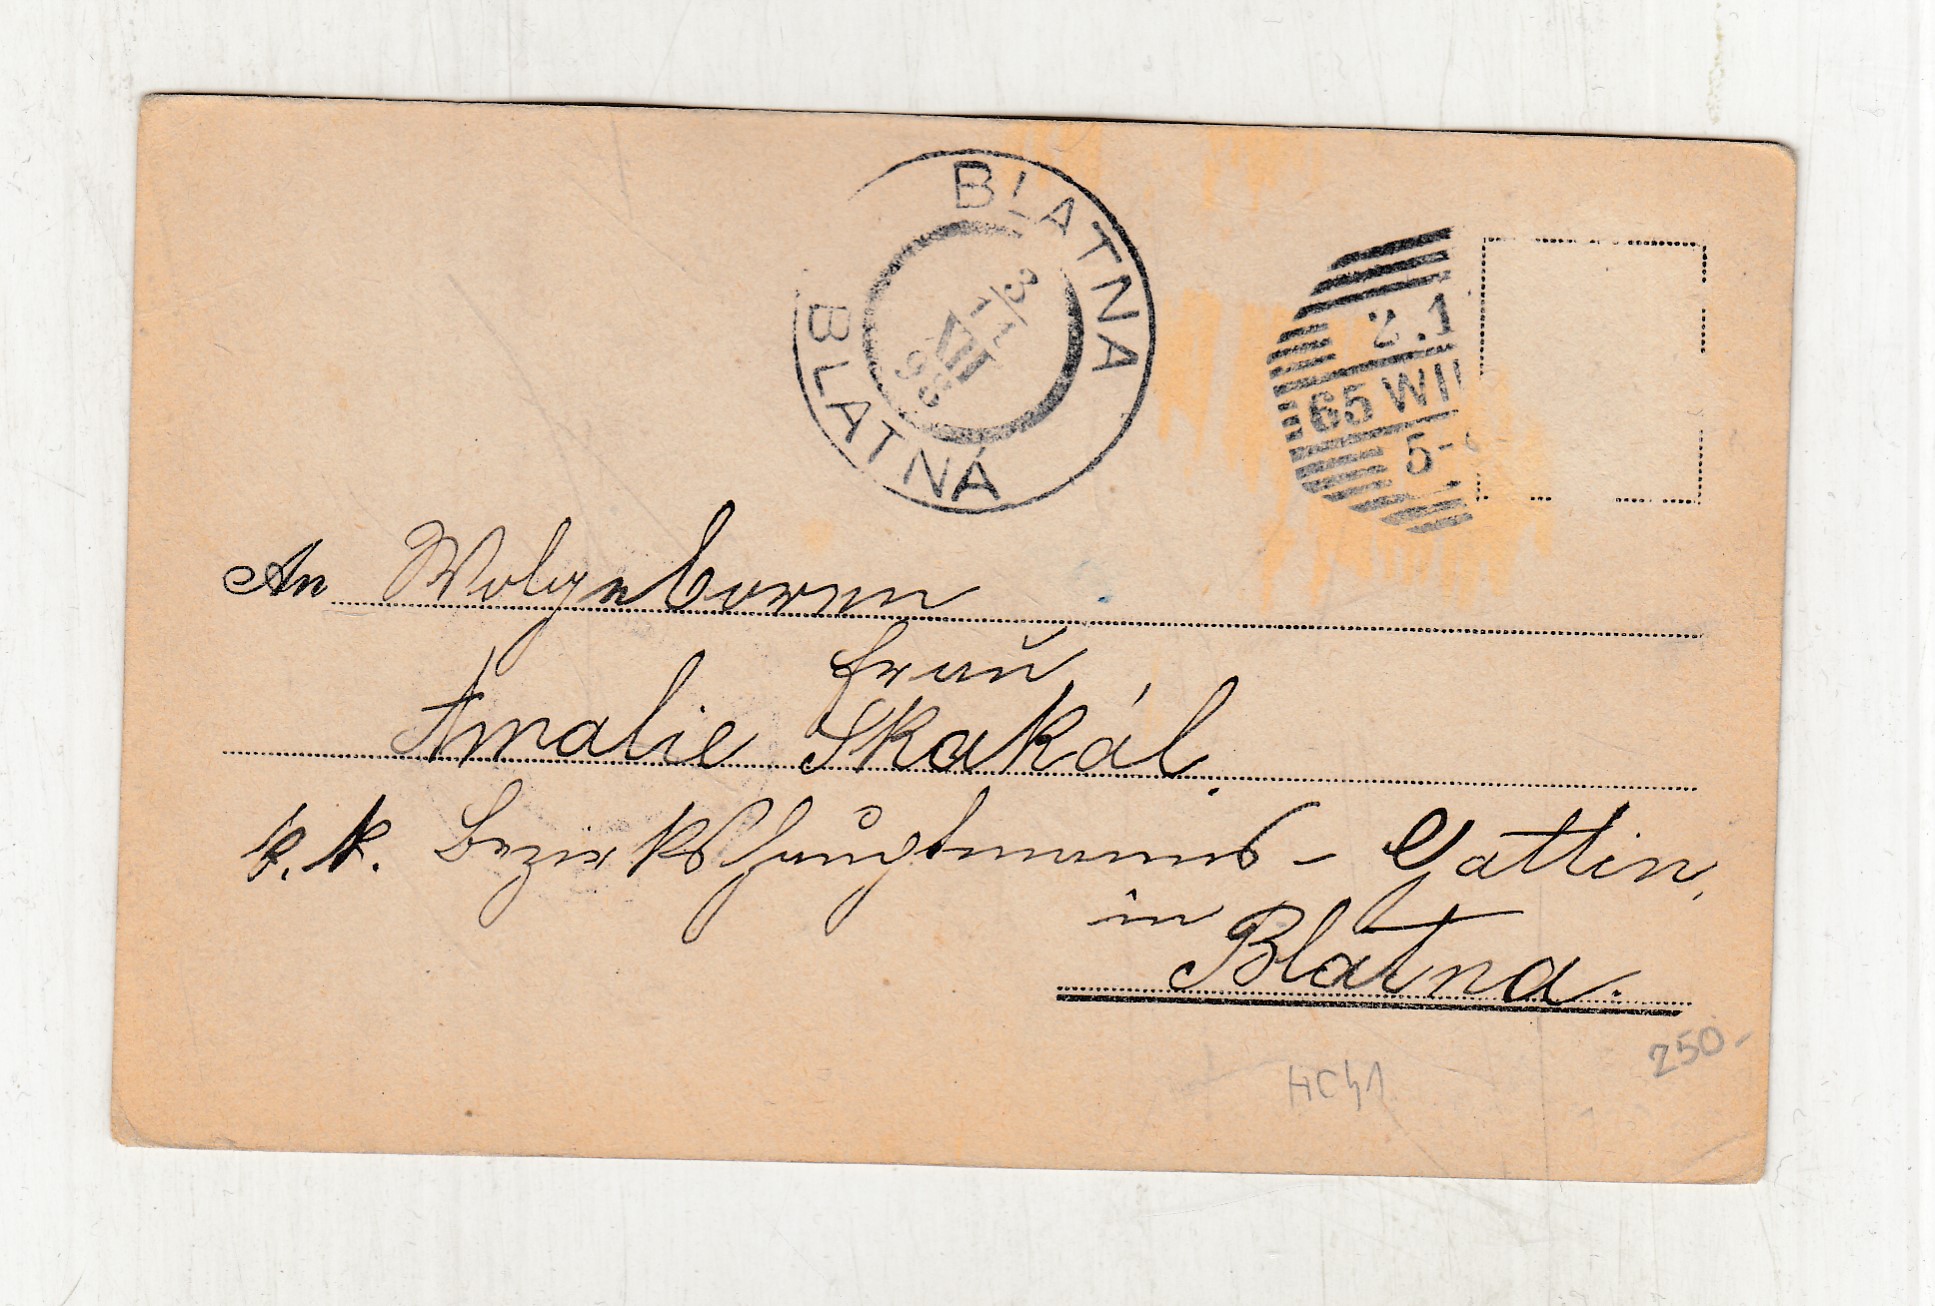 BLATNA
3/11
XII
98
BLATNÁ
2.1
65 WI
5-
An Wolgeboren
Frau
Amalie Skakál.
k. k. Bezirkshauptmanns - Gattin,
in
Blatna.
250.-